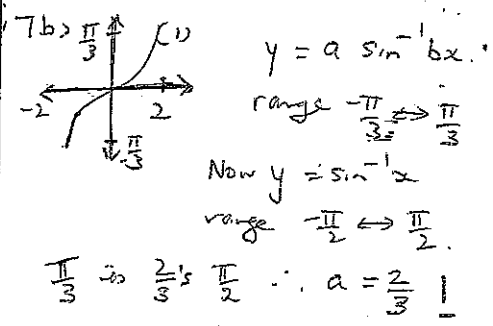 7b) π/3 (1)
y = a sin⁻¹ bx.
-2 2
-π/3
range -π/3 ↔ π/3
Now y = sin⁻¹ x
range -π/2 ↔ π/2.
π/3 is 2/3's π/2 ∴ a = 2/3 !